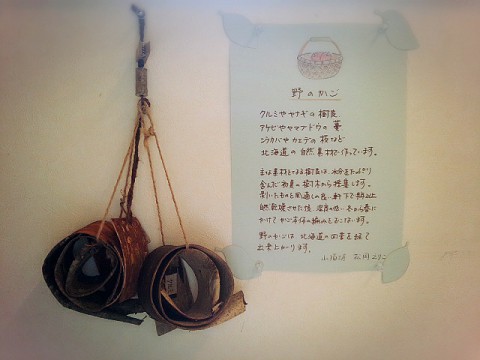 野のかご
クルミやヤナギの樹皮
アケビやヤマブドウの蔓
シラカバやカエデの枝など
北海道の自然素材で作っています。
主な素材となる樹皮は、水分をたっぷり
含んだ初夏の樹木から採集します。
剥いだものを風通しの良い軒下で
自然乾燥させた後、
かけてかご作りの編みをおこないます。
野のかごは、北海道の四季を経て
出来上がります。